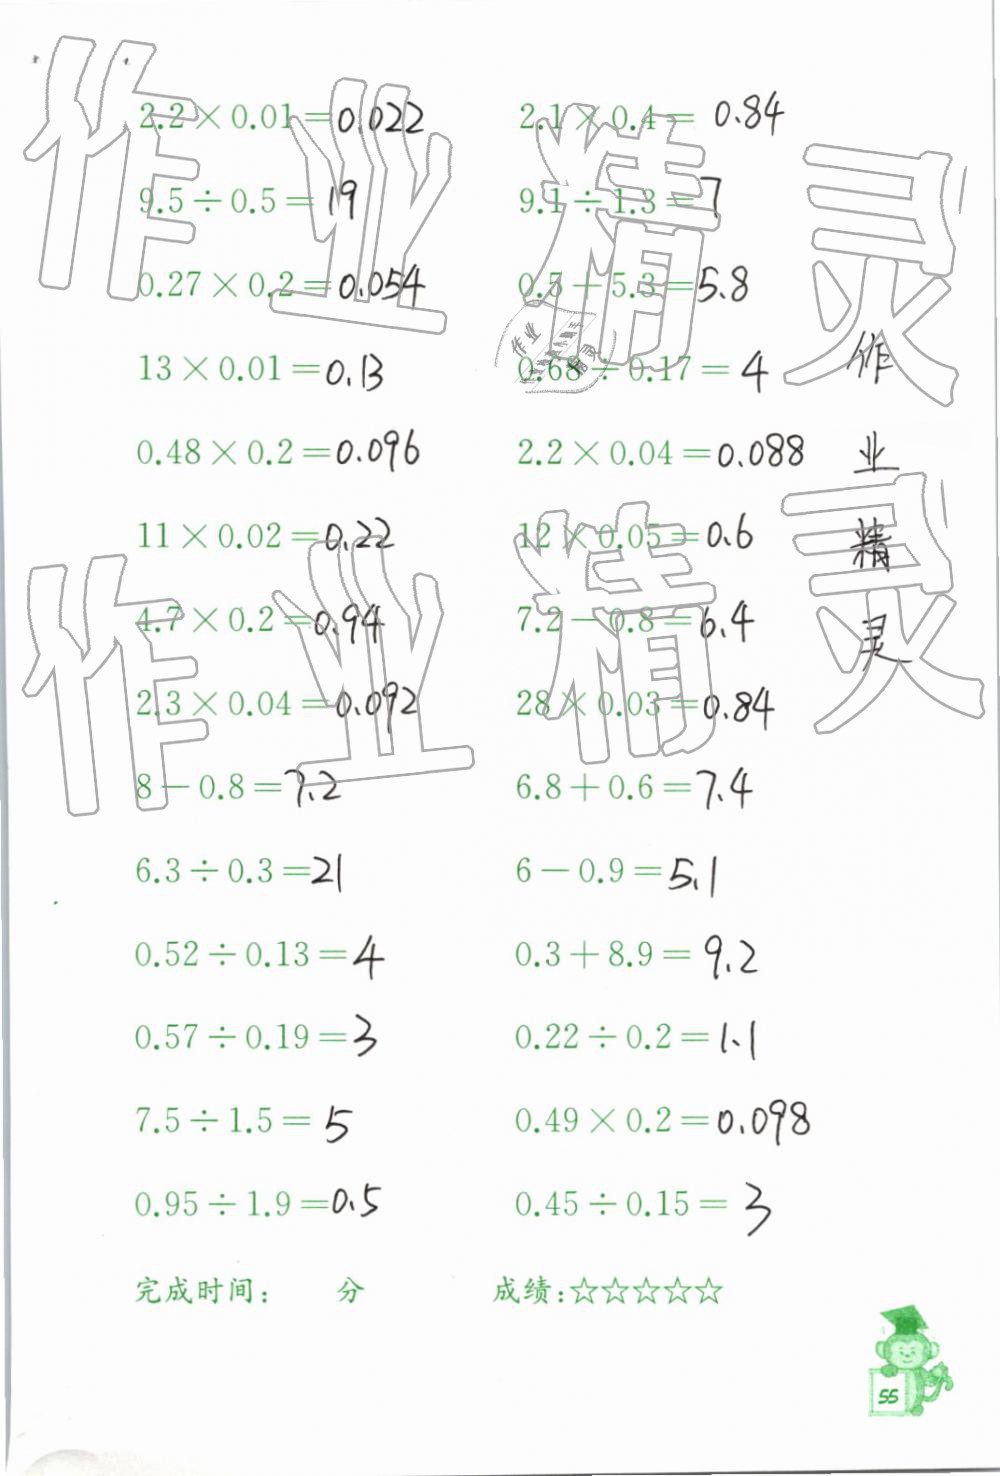 2.2×0.01=0.022 2.1×0.4=0.84
9.5÷0.5=19 9.1÷1.3=7
0.27×0.2=0.054 0.5+5.3=5.8
13×0.01=0.13 0.68÷0.17=4
0.48×0.2=0.096 2.2×0.04=0.088
11×0.02=0.22 12×0.05=0.6
4.7×0.2=0.94 7.2-0.8=6.4
2.3×0.04=0.092 28×0.03=0.84
8-0.8=7.2 6.8+0.6=7.4
6.3÷0.3=21 6-0.9=5.1
0.52÷0.13=4 0.3+8.9=9.2
0.57÷0.19=3 0.22÷0.2=1.1
7.5÷1.5=5 0.49×0.2=0.098
0.95÷1.9=0.5 0.45÷0.15=3
完成时间: 分 成绩:☆☆☆☆☆
55
作业精灵
作业精灵
作业精灵